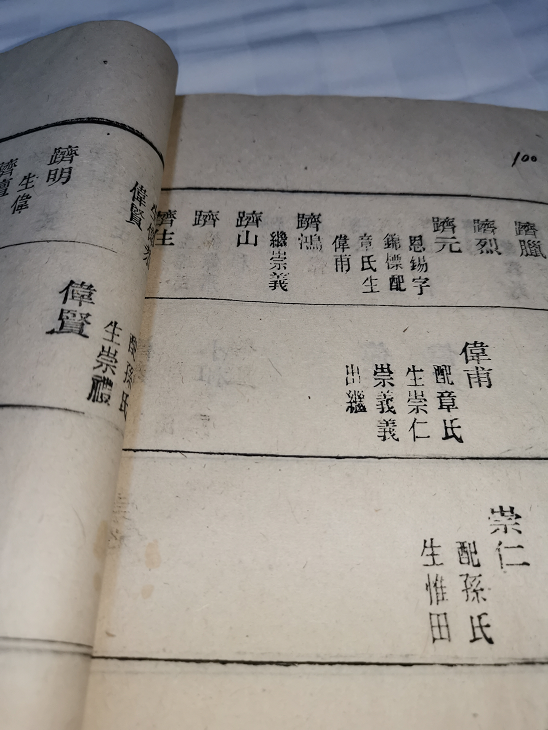 100
躋臘
躋烈
躋元
恩錫字
錦標配
章氏生
偉甫
躋鴻
繼崇義
躋山
躋
躋生
偉甫
配章氏
生崇仁
崇義義
出繼
崇仁
配孫氏
生惟田
躋明
生偉
偉賢
偉賢
配孫氏
生崇禮